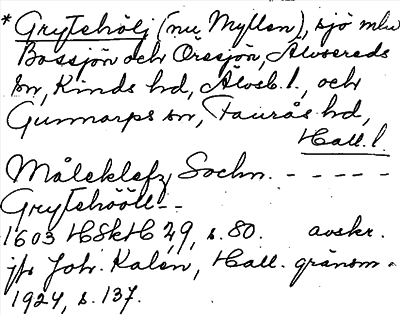 * Grytehölj (nu Myllen), sjö mlm
Bossjön och Öresjön, Älvsereds
sn, Kinds hd, Älvsb. l., och
Gunnarps sn, Faurås hd,
Hall. l.
Måleklefz Sochn. - - - - -
Grytehööll - -
1603 HSkH 29, s. 80. avskr.
jfr Joh. Kalén, Hall. gränsm.
1924, s. 137.